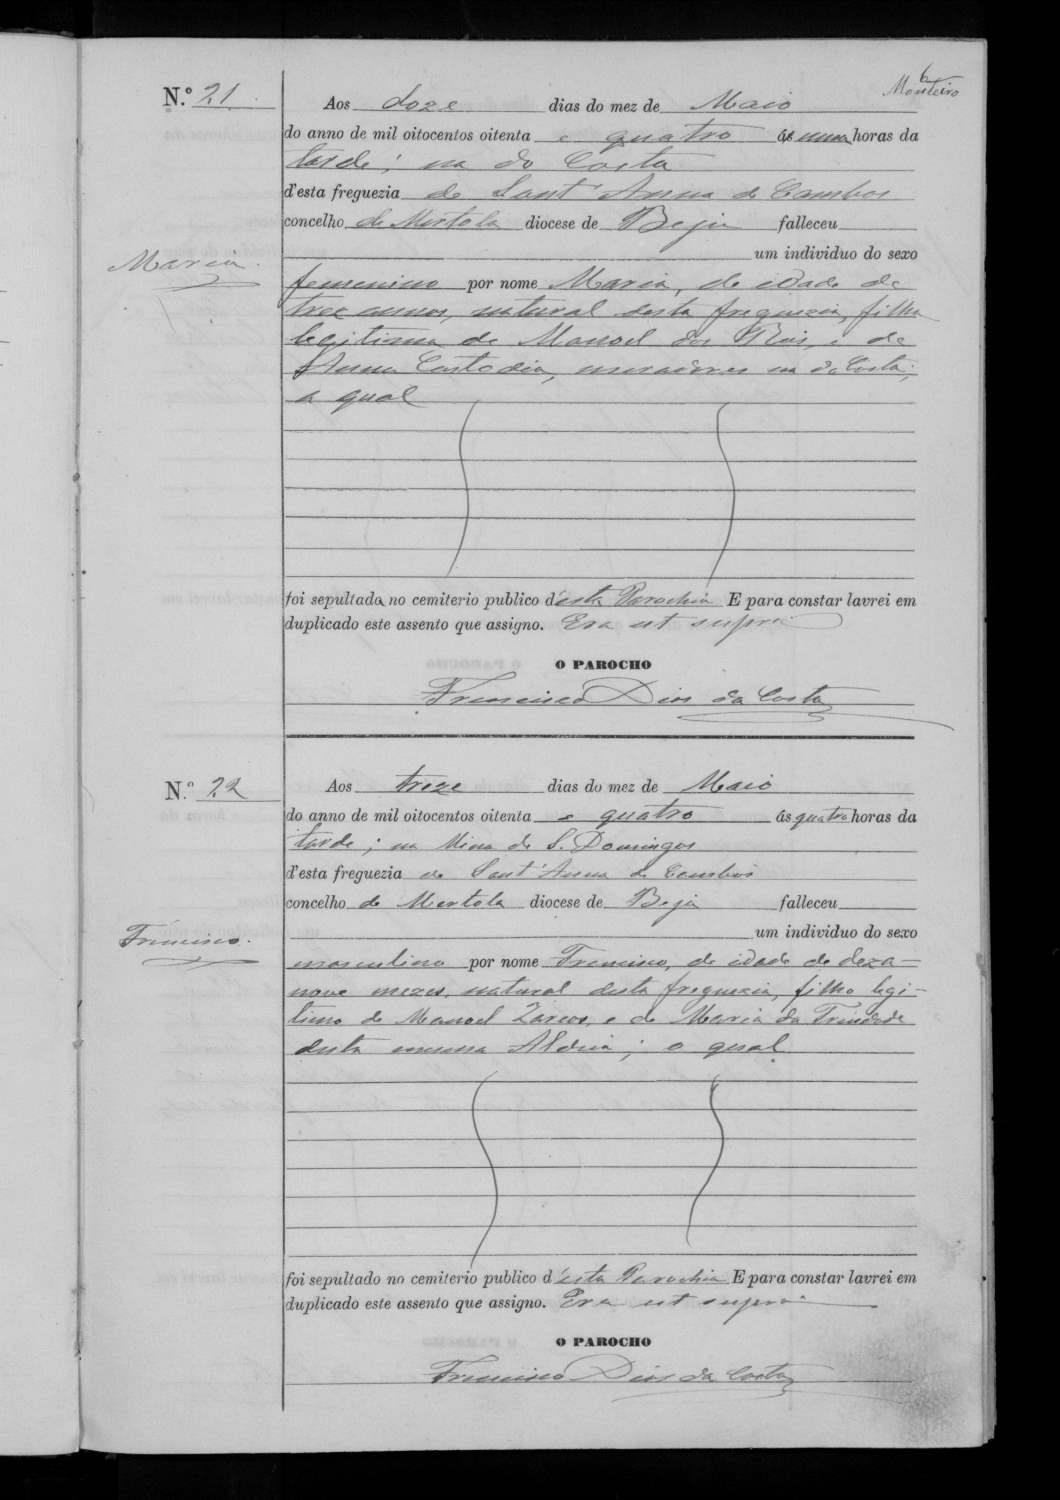 6
Monteiro
N.º 21.
Aos doze dias do mez de Maio
do anno de mil oitocentos oitenta e quatro ás uma horas da
tarde; na do Costa
d'esta freguezia de Sant'Anna de Cambas
concelho de Mertola diocese de Beja falleceu
um individuo do sexo
Maria.
femenino por nome Maria, de idade de
trez annos, natural desta freguezia, filha
legitima de Manoel dos Reis, e de
Anna Custodia, moradores na do Costa;
a qual
foi sepultada no cemiterio publico d'esta Parochia E para constar lavrei em
duplicado este assento que assigno. Era ut supra
O PAROCHO
Francisco Dias da Costa
N.º 22
Aos treze dias do mez de Maio
do anno de mil oitocentos oitenta e quatro ás quatro horas da
tarde; na Mina de S. Domingos
d'esta freguezia de Sant'Anna de Cambas
concelho de Mertola diocese de Beja falleceu
um individuo do sexo
Francisco.
masculino por nome Francisco, de idade de deza=
nove mezes, natural desta freguezia, filho legi-
timo de Manoel e de Maria da Trindade
desta mesma Aldeia; o qual
foi sepultado no cemiterio publico d'esta Parochia E para constar lavrei em
duplicado este assento que assigno. Era ut supra
O PAROCHO
Francisco Dias da Costa